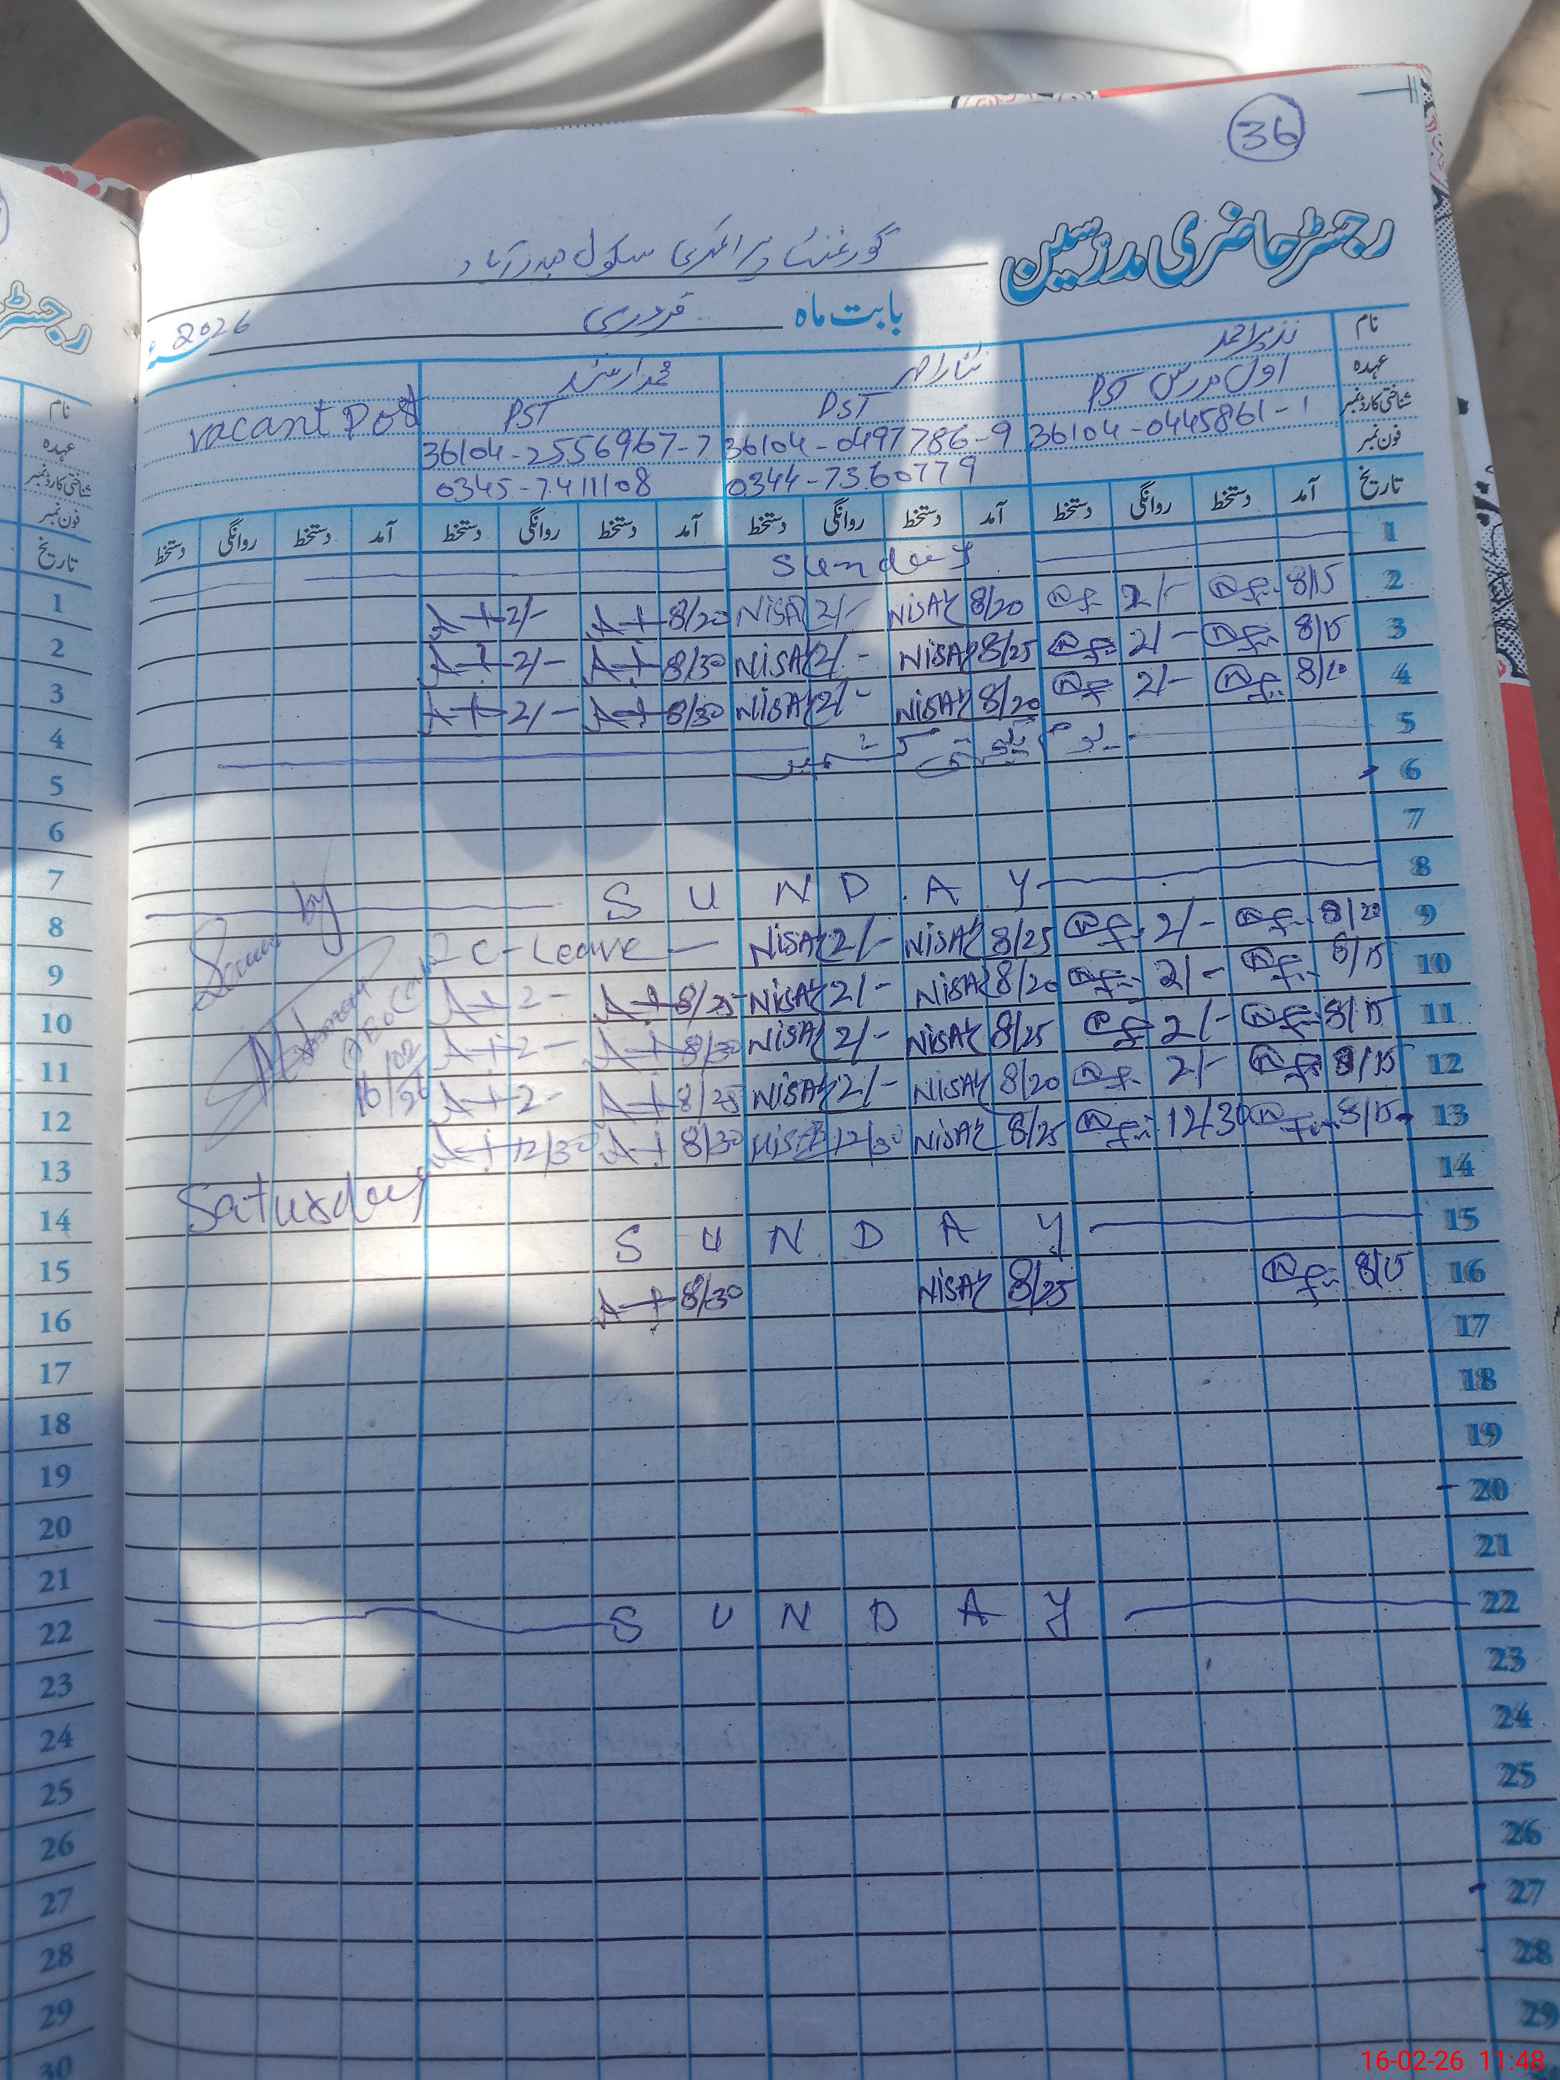 36
رجسٹر حاضری مدرسین
گورنمنٹ پرائمری سکول
بابت ماہ فروری 2026
نام نذیر احمد نثار احمد محمد ارشد
عہدہ اول مدرس PST PST PST vacant Post
شناختی کارڈ نمبر 36104-0445861-1 36104-0497786-9 36104-2556967-7
فون نمبر 0344-7360779 0345-7411108
تاریخ آمد دستخط روانگی دستخط آمد دستخط روانگی دستخط آمد دستخط روانگی دستخط آمد دستخط روانگی دستخط
1 Sunday
2 8/15 2/- 8/20 NISAR 2/- NISAR 8/20 2/-
3 8/15 2/- 8/25 NISAR 2/- NISAR 8/30 2/-
4 8/10 2/- 8/20 NISAR 2/- NISAR 8/30 2/-
5
6
7
8 SUNDAY
9 8/20 2/- 8/25 NISAR 2/- NISAR C-Leave
10 8/15 2/- 8/20 NISAR 2/- NISAR 8/25 2-
11 8/15 2/- 8/25 NISAR 2/- NISAR 8/30 2-
12 8/15 2/- 8/20 NISAR 2/- NISAR 8/25 2-
13 8/15 12/30 8/25 NISAR 12/30 NISAR 8/30 12/30
by
16/02/26
14 Saturday
15 SUNDAY
16 8/15 8/25 NISAR 8/30
17
18
19
20
21
22 SUNDAY
23
24
25
26
27
28
29
نام
عہدہ
شناختی کارڈ نمبر
فون نمبر
تاریخ
1
2
3
4
5
6
7
8
9
10
11
12
13
14
15
16
17
18
19
20
21
22
23
24
25
26
27
28
29
30
16-02-26 11:48